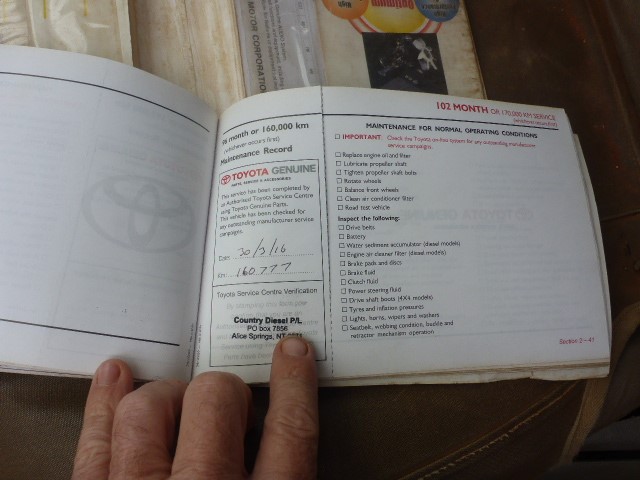 Optimum
High
MOTOR CORPORATION
96 month or 160,000 km
(whichever occurs first)
Maintenance Record
TOYOTA GENUINE
PARTS, SERVICE & ACCESSORIES
This service has been completed by
an Authorised Toyota Service Centre
using Toyota Genuine Parts.
This vehicle has been checked for
any outstanding manufacturer service
campaigns.
Date: 30/3/16
KM: 160777
Toyota Service Centre Verification
Country Diesel P/L
PO box 7856
Alice Springs, NT
102 MONTH OR 170,000 KM SERVICE
(whichever occurs first)
MAINTENANCE FOR NORMAL OPERATING CONDITIONS
☐ IMPORTANT: Check the Toyota on-line system for any outstanding manufacturer
service campaigns.
☐ Replace engine oil and filter
☐ Lubricate propeller shaft
☐ Tighten propeller shaft bolts
☐ Rotate wheels
☐ Balance front wheels
☐ Clean air conditioner filter
☐ Road test vehicle
Inspect the following:
☐ Drive belts
☐ Battery
☐ Water sediment accumulator (diesel models)
☐ Engine air cleaner filter (diesel models)
☐ Brake pads and discs
☐ Brake fluid
☐ Clutch fluid
☐ Power steering fluid
☐ Drive shaft boots (4X4 models)
☐ Tyres and inflation pressures
☐ Lights, horns, wipers and washers
☐ Seatbelt, webbing condition, buckle and
retractor mechanism operation
Section 2 – 41